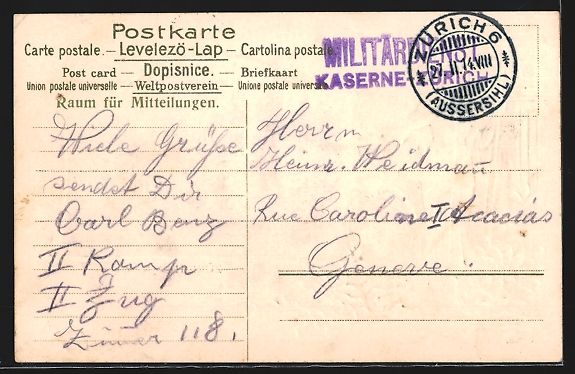 Postkarte
Carte postale. — Levelező-Lap — Cartolina postale.
Post card — Dopisnice. — Briefkaart
Union postale universelle — Weltpostverein — Unione postale universale
Raum für Mitteilungen.
MILITÄRDIENST
KASERNE ZÜRICH
ZÜRICH 6
27. I. 14. VIII
(AUSSERSIHL)
Viele Grüsse
sendet Dir
Carl Benz
II Komp
II Zug
Zimmer 118.
Herrn
Heinr. Weidman
Rue Caroline I Acacias
Geneve.